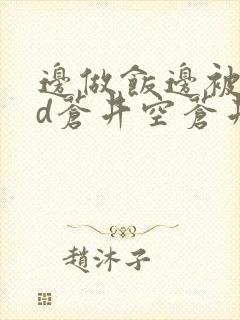 邊做飯邊被
d蒼井空蒼井
趙沐子